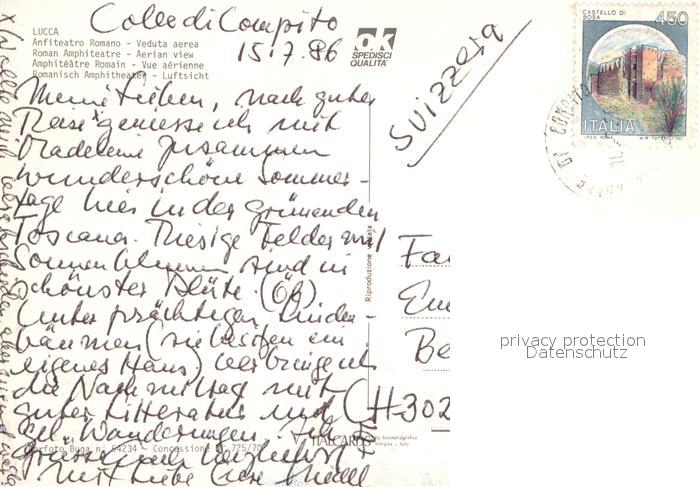 Colle di Compito
15.7.86
LUCCA
Anfiteatro Romano - Veduta aerea
Roman Amphiteatre - Aerian view
Amphitéâtre Romain - Vue aérienne
Romanisch Amphitheater - Luftsicht
OK
SPEDISCI
QUALITÀ
CASTELLO DI
BOSA
450
ITALIA
Svizzera
Meine Lieben, nach guter
Reise geniesse ich mit
Madeleine zusammen
wunderschöne Sommer-
tage hier in der grünenden
Toscana. Riesige Felder mit
Sonnenblumen sind in
schönster Blüte. (Öl)
Unter prächtigen Linden-
bäumen (sie besitzen ein
eigenes Haus) verbringe ich
die Nachmittag mit
guter Litteratur und
Wanderungen. Ich
grüsse Euch herzlichst
Mit Liebe Eure
Riproduzione vietata
Fa
Em
Be
(H-302
privacy protection
Datenschutz
ITALCARDS
Fotorfoto Buga n° 54234 - Concessione n° 725/70